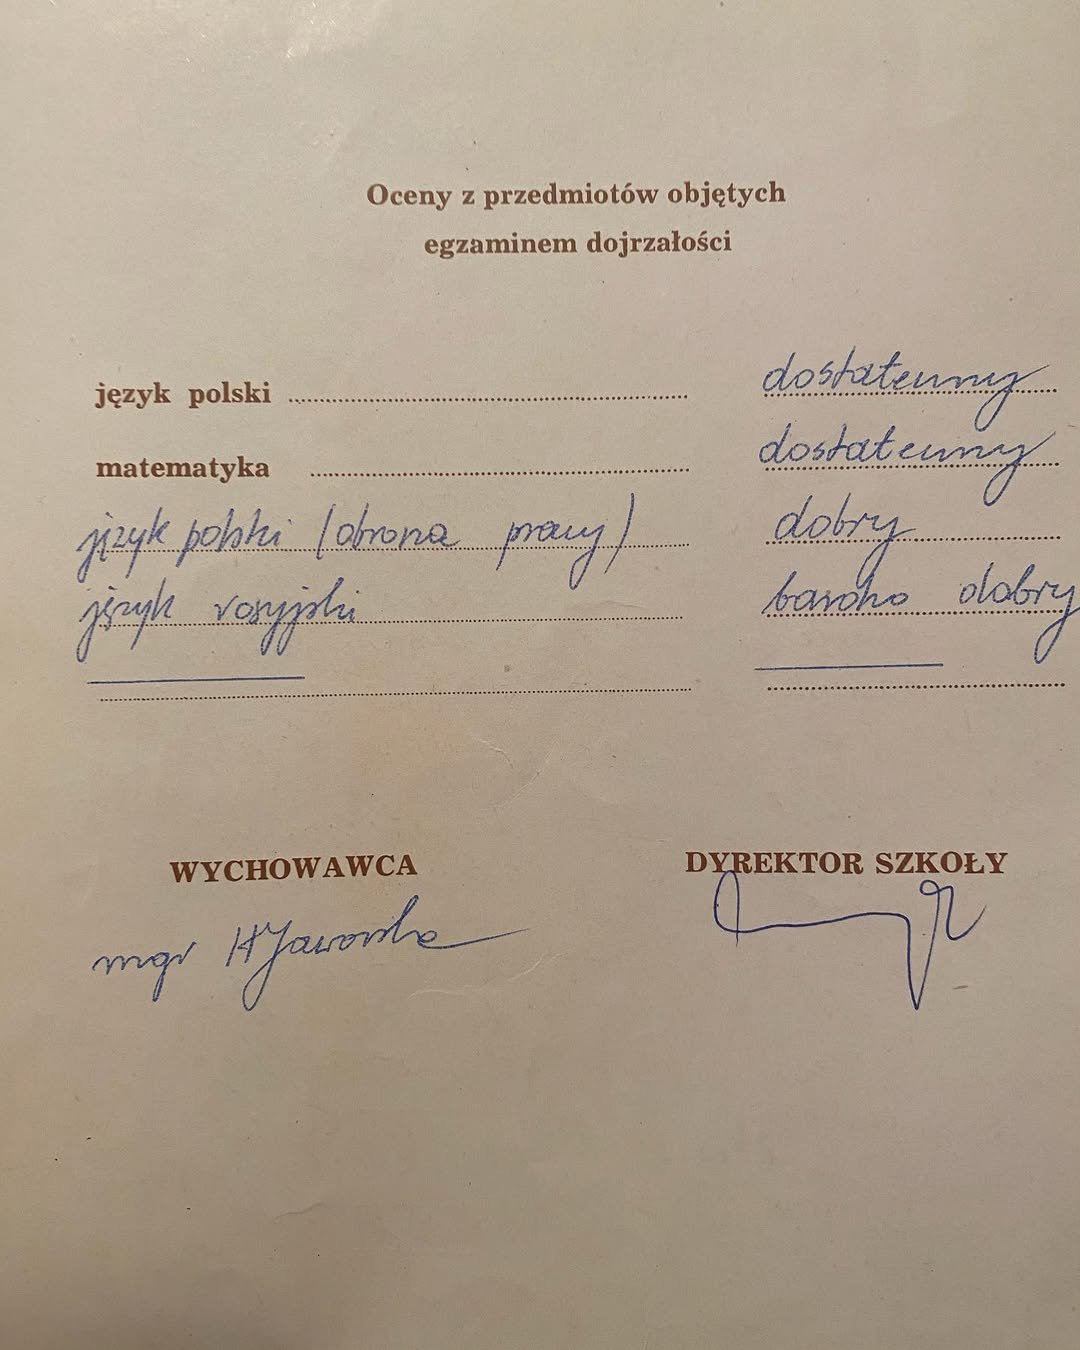 Oceny z przedmiotów objętych
egzaminem dojrzałości
język polski dostateczny
matematyka dostateczny
język polski (obrona pracy) dobry
język rosyjski bardzo dobry
WYCHOWAWCA DYREKTOR SZKOŁY
mgr H Jaworska